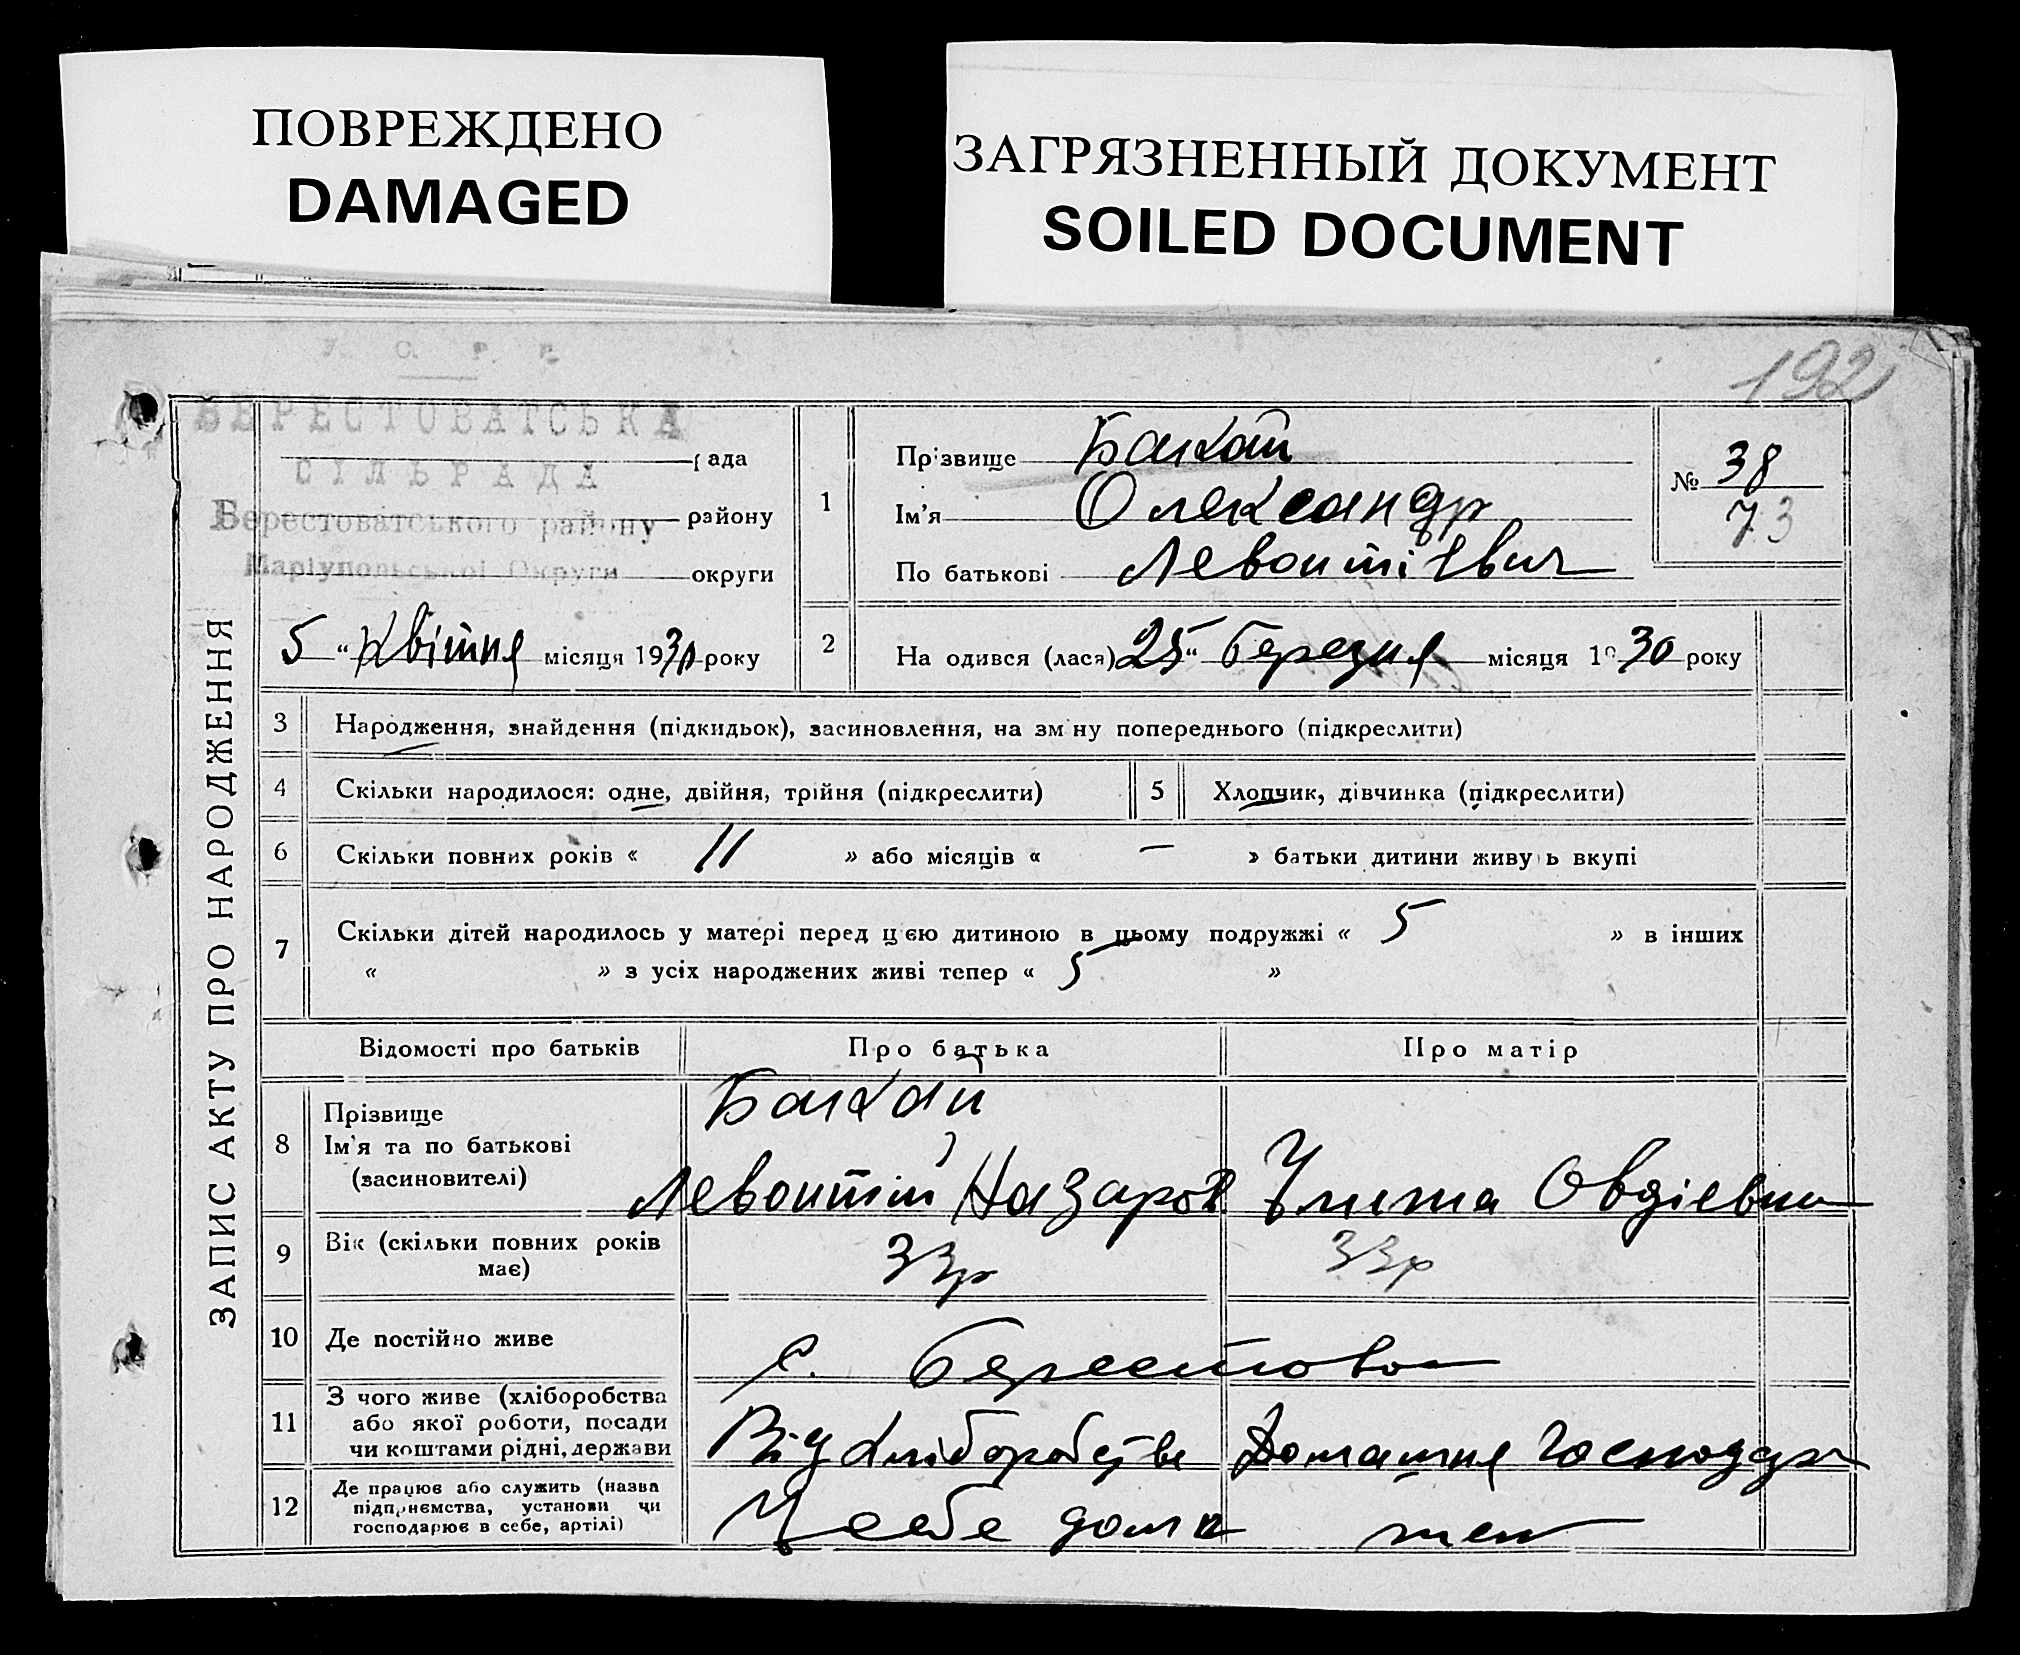 ПОВРЕЖДЕНО
DAMAGED
ЗАГРЯЗНЕННЫЙ ДОКУМЕНТ
SOILED DOCUMENT
192
У. С. Р. Р.
БЕРЕСТОВАТСЬКА
рада
СІЛЬРАДА
Берестоватського району району
Маріупольської Округи округи
5 " Квітня місяця 1930 року
1 Прізвище Бакай
Ім'я Олександр
По батькові Левонтіевич
№ 38
73
2 На одився (лася) 25 " Березня місяця 1930 року
ЗАПИС АКТУ ПРО НАРОДЖЕННЯ
3 Народження, знайдення (підкидьок), засиновлення, на зм ну попереднього (підкреслити)
4 Скільки народилося: одне, двійня, трійня (підкреслити) 5 Хлопчик, дівчинка (підкреслити)
6 Скільки повних років « 11 » або місяців « — » батьки дитини живу ь вкупі
7 Скільки дітей народилось у матері перед цією дитиною в цьому подружжі « 5 » в інших
« » з усіх народжених живі тепер « 5 »
Відомості про батьків Про батька Про матір
8 Прізвище
Ім'я та по батькові
(засиновителі)
Бакай
Левонтій Назаров Улита Овдіевна
9 Вік (скільки повних років
має)
33р 33р
10 Де постійно живе с. Берестова
11 З чого живе (хліборобства
або якої роботи, посади
чи коштами рідні, держави
Від хліборобства Домашня Господар
12 Де працює або служить (назва
підприємства, установи чи
господарює в себе, артілі)
У себе дома теж